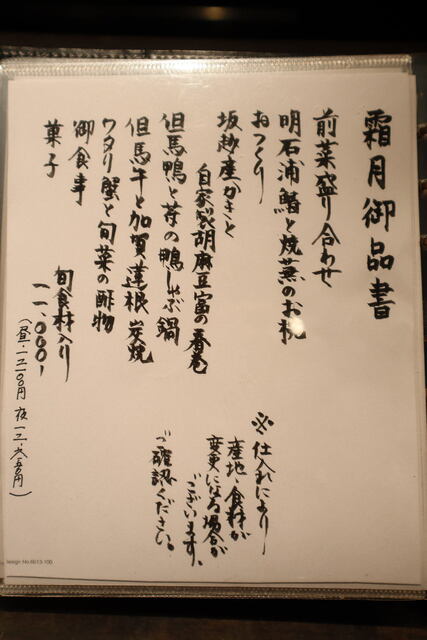 霜月御品書
前菜盛り合わせ
明石浦鰆と焼蕪のお椀
おつくり
坂越産かきと
自家製胡麻豆富の春巻
但馬鴨と芹の鴨しゃぶ鍋
但馬牛と加賀蓮根炭焼
ワタリ蟹と旬菜の酢物
御食事
菓子
旬食材入り
一一、〇〇〇、
(昼・一二一〇〇円 夜一二・六五〇円)
※仕入れにより
産地・食材が
変更になる場合が
ございます、
ご確認ください。
design No.6013-100